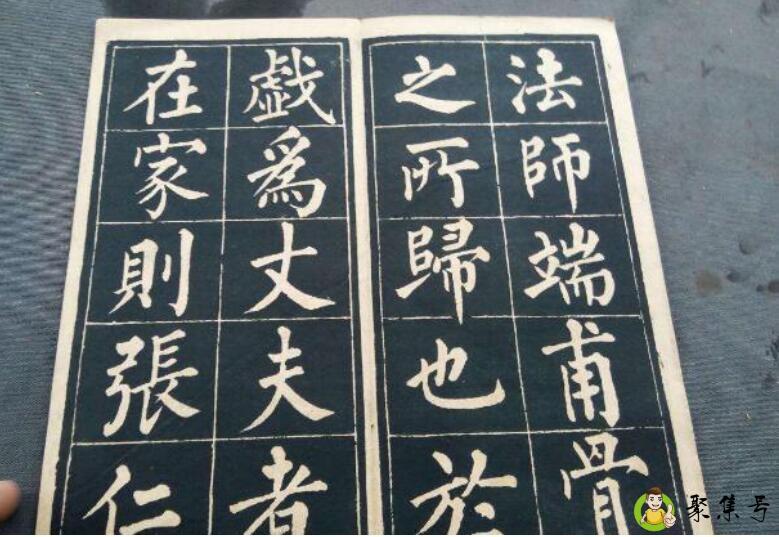 法師端甫骨
之所歸也於
戱爲丈夫者
在家則張仁
聚集号